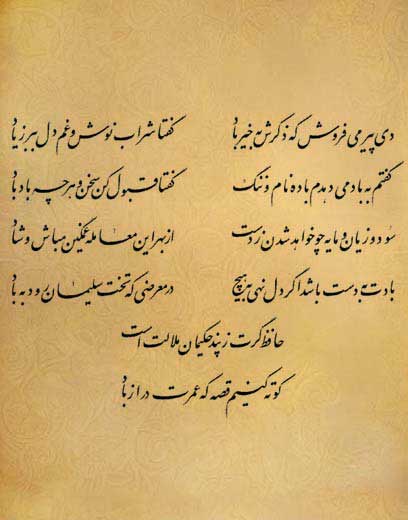 دی پیر می فروش که ذکرش به خیر باد گفتا شراب نوش و غم دل ببر ز یاد
گفتم به باد می دهدم باده نام و ننگ گفتا قبول کن سخن و هر چه باد باد
سود و زیان و مایه چو خواهد شدن ز دست از بهر این معامله غمگین مباش و شاد
بادت به دست باشد اگر دل نهی به هیچ در معرضی که تخت سلیمان رود به باد
حافظ گرت ز پند حکیمان ملالت است
کوته کنیم قصه که عمرت دراز باد